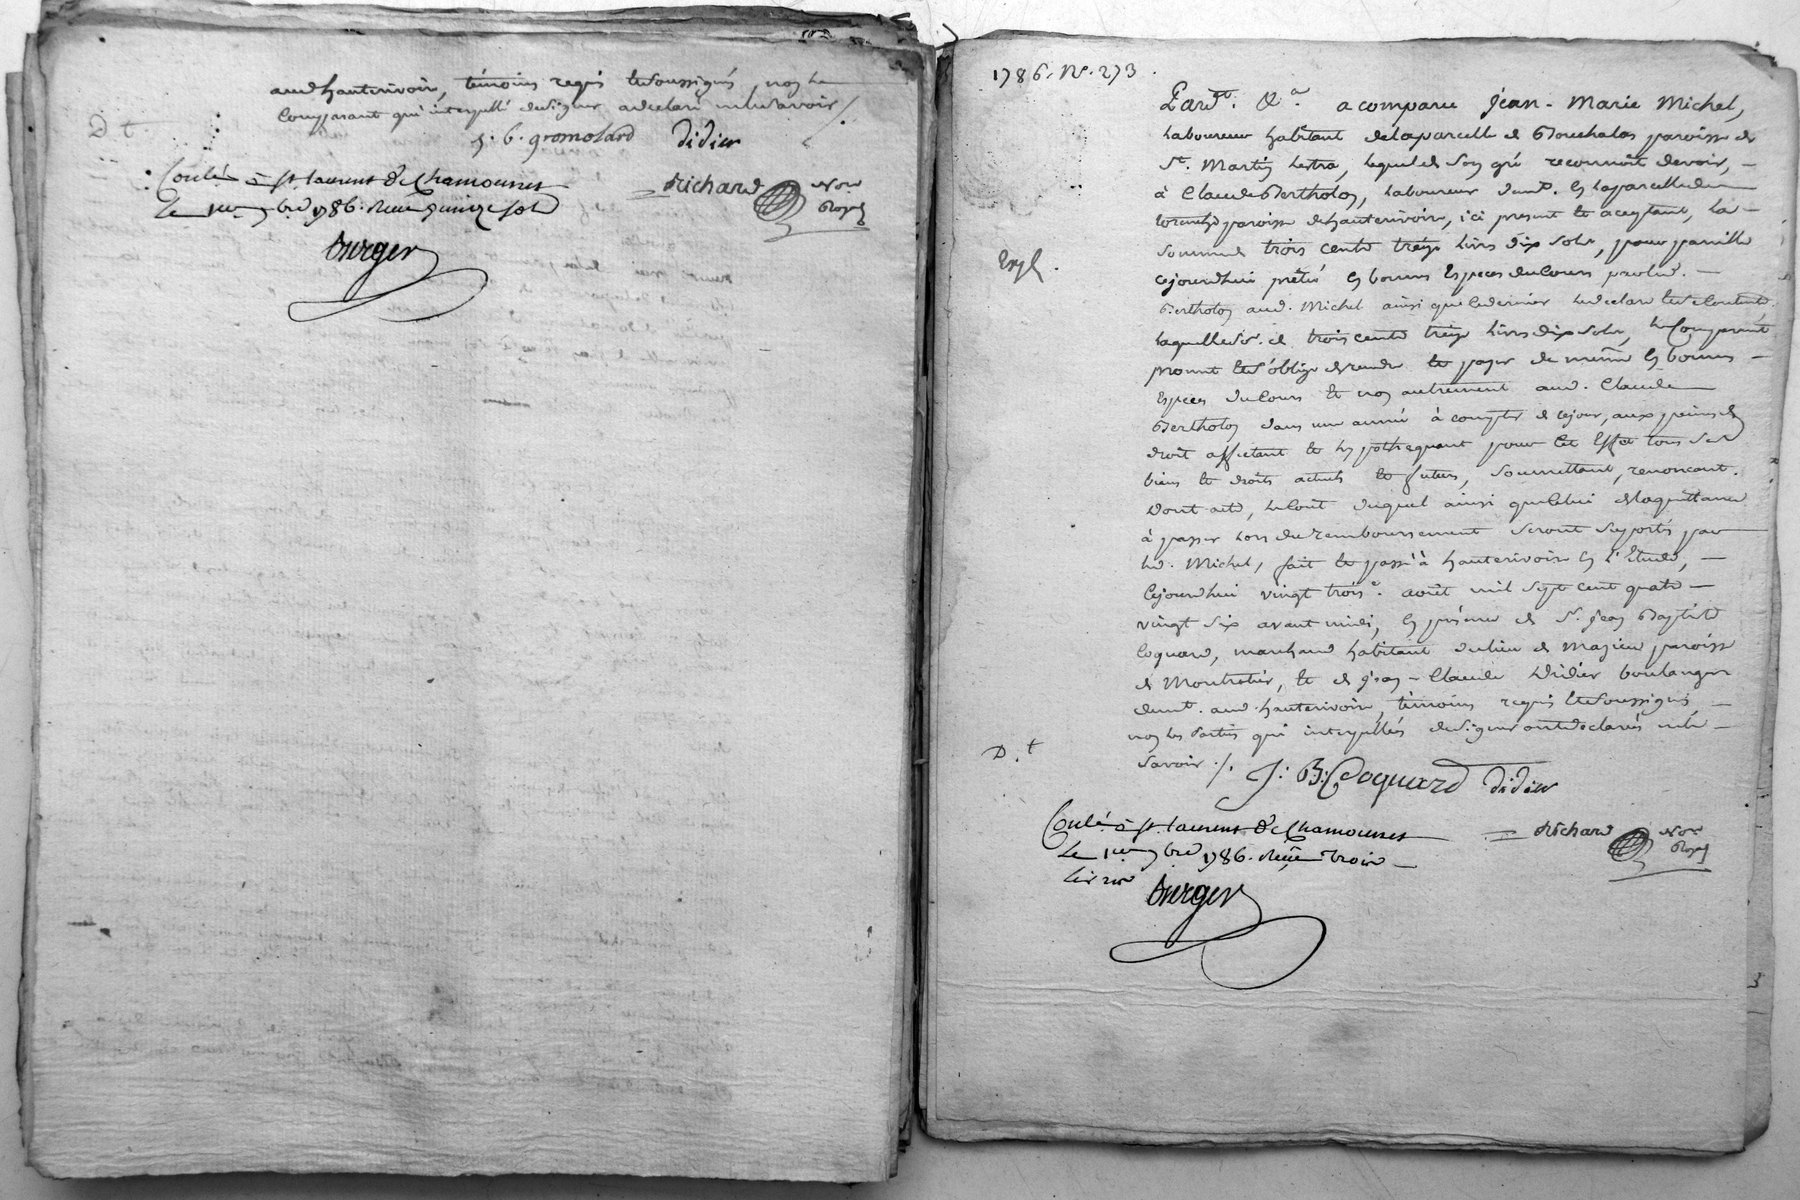 aud. hauterivoir, témoins requis et soussignés, non le
Comparant qui interpellé de signer a declaré ne le savoir /.
D t.
J: b. gromolard didier
Conlé à St. laurent de Chamousset
Richard Nore Royal
le 1er 7bre 1786. Reçu quinze sols
Burger
1786. No. 273.
Pardt. &a. a comparu Jean-Marie Michel,
laboureur habitant de la parcelle de Bouchalas paroisse de
St. Martin Lestra, lequel de son gré reconnoit devoir,
à Claude Bertholon, laboureur demt. en la parcelle de
paroisse de hauterivoir, ici present et aceptant, la
somme de trois cents treize livres dix sols, pour pareille
Expé.
cejourdhui prêtée en bonnes Especes du Cours par led.
Bertholon aud. Michel ainsi que ce dernier le declare et s'en Contente,
laquelle so. de trois cents treize livres dix sols, le Comparant
promet et s'oblige de rendre et payer de même en bonnes
Especes du Cours et non autrement aud. Claude
Bertholon dans une année à compter de cejour, aux peines de
droit affectant et hypothequant pour cet Effet tous ses
biens et droits actuels et futurs, soumettant, renonçant.
dont acte, le Cout duquel ainsi que Celui de la quittance
à passer lors du remboursement seront suportés par
led. Michel, fait et passé à hauterivoir en l'Etude,
Cejourdhui vingt trois e. août mil sept cent quatre
vingt six avant midi, en présence de Sr. Jean Baptiste
Coquard, marchand habitant du lieu de Mazieu paroisse
de Montrotier, et de Jean-Claude Didier boulanger
demt. aud. hauterivoir, témoins requis et soussignés,
non les Parties qui interpellées de signer ont declarés ne le
D. t
savoir /.
J: B: Coquard didier
Conlé à St. laurent de Chamousset
Richard Nore Royal
Le 1er 7bre 1786. Reçu trois
livres
Burger